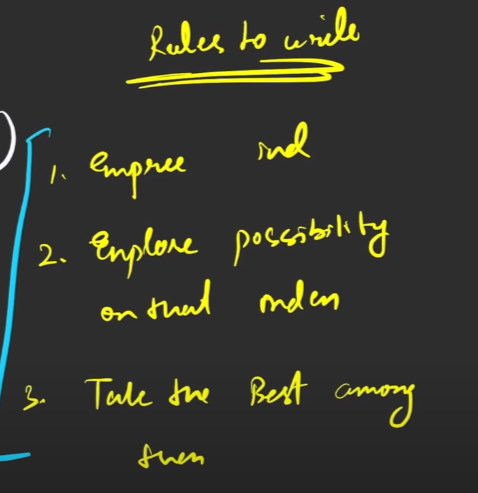 Rules to write
1. Express ind
2. Explore possibility
on that index
3. Take the Best among
them